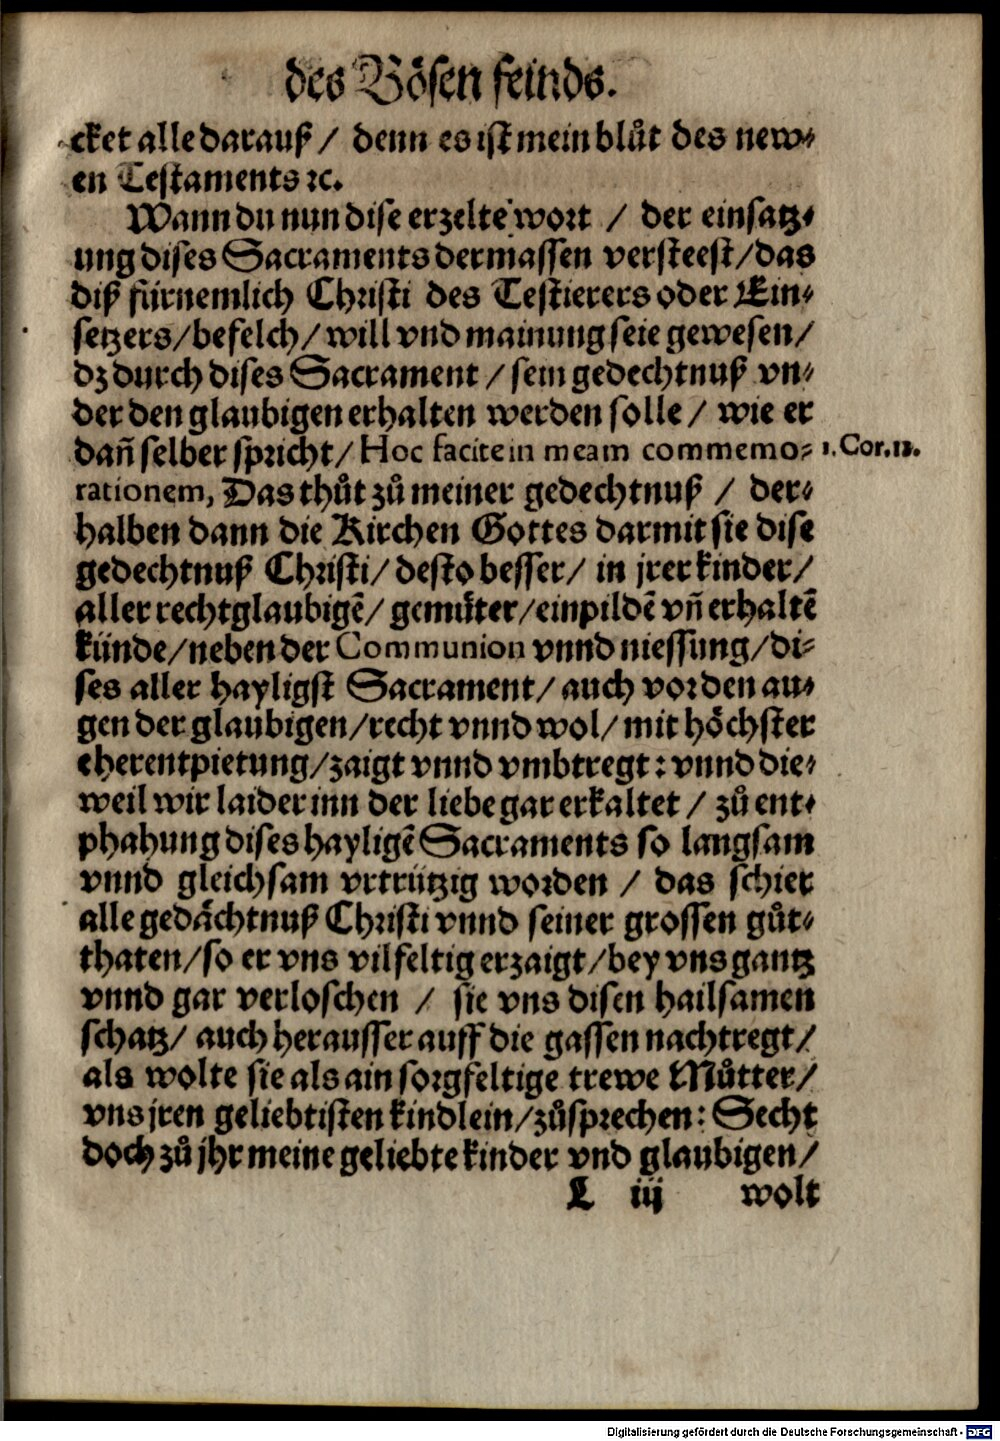 des Bösen feinds.
cket alle darauß / denn es ist mein blůt des new⸗
en Testaments ꝛc.
Wann du nun dise erzelte wort / der einsatz⸗
ung dises Sacraments dermassen versteest/das
diß fürnemlich Christi des Testierers oder Ein⸗
setzers/befelch/will vnd mainung seie gewesen/
dz durch dises Sacrament / sein gedechtnuß vn⸗
der den glaubigen erhalten werden solle / wie er
dañ selber spricht/ Hoc facite in meam commemo⸗ 1.Cor.11.
rationem, Das thůt zů meiner gedechtnuß / der⸗
halben dann die Kirchen Gottes darmit sie dise
gedechtnuß Christi/ desto besser/ in jrer kinder/
aller rechtglaubigẽ/ gemůter/einpildẽ vñ erhaltẽ
künde/neben der Communion vnnd niessung/di⸗
ses aller hayligst Sacrament/ auch vor den au⸗
gen der glaubigen/recht vnnd wol/ mit höchster
eherentpietung/zaigt vnnd vmbtregt: vnnd die⸗
weil wir laider inn der liebe gar erkaltet / zů ent⸗
phahung dises hayligẽ Sacraments so langsam
vnnd gleichsam vrtrützig worden / das schier
alle gedächtnuß Christi vnnd seiner grossen gůt⸗
thaten/so er vns vilfeltig erzaigt/bey vns gantz
vnnd gar verloschen / sie vns disen hailsamen
schatz/ auch herausser auff die gassen nachtregt/
als wolte sie als ain sorgfeltige trewe Můtter/
vns jren geliebtisten kindlein/zůsprechen: Secht
doch zů jhr meine geliebte kinder vnd glaubigen/
L iij wolt
Digitalisierung gefördert durch die Deutsche Forschungsgemeinschaft - DFG